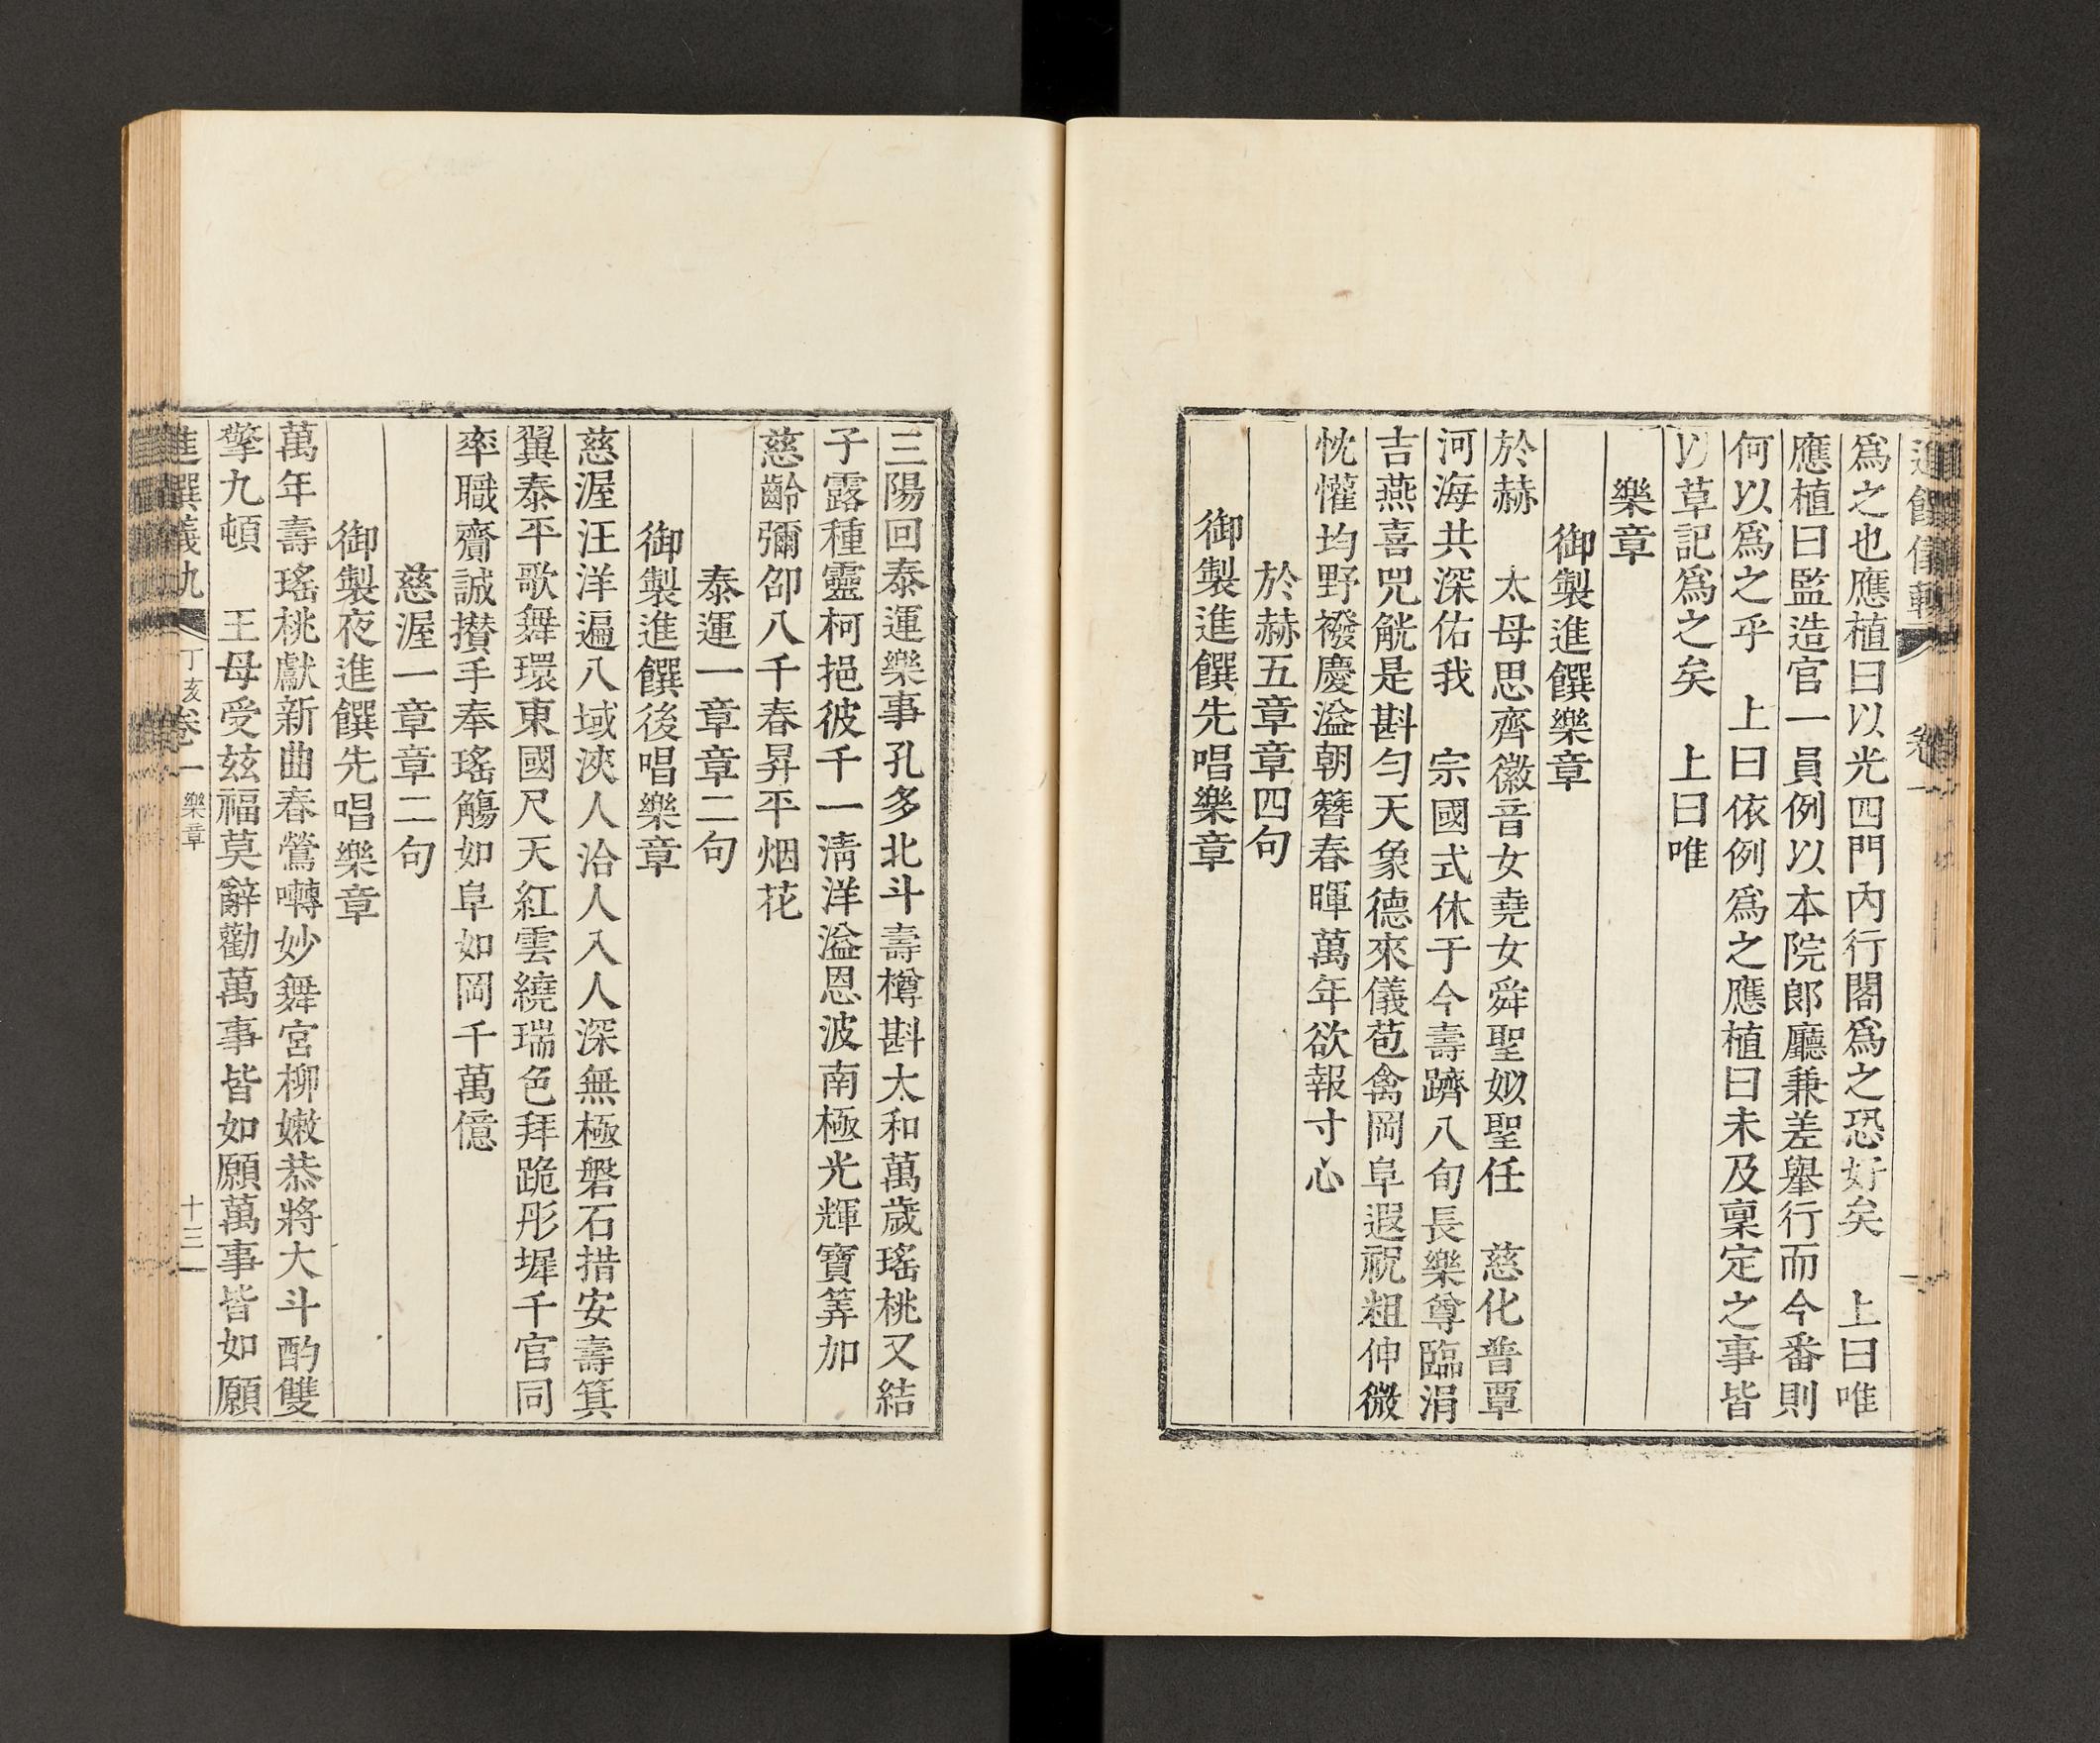 爲之也應植曰以光四門內行閣爲之恐好矣　上曰唯
應植曰監造官一員例以本院郞廳兼差擧行而今番則
何以爲之乎　上曰依例爲之應植曰未及稟定之事皆
以草記爲之矣　上曰唯
樂章
御製進饌樂章
於赫　太母思齊徽音女堯女舜聖姒聖任　慈化普覃
河海共深佑我　宗國式休于今壽躋八旬長樂尊臨涓
吉燕喜兕觥是斟勻天象德來儀苞禽岡阜遐祝粗伸微
忱懽均野襏慶溢朝簪春暉萬年欲報寸心
於赫五章章四句
御製進饌先唱樂章
三陽回泰運樂事孔多北斗壽樽斟太和萬歲瑤桃又結
子露種靈柯挹彼千一淸洋溢恩波南極光輝寶筭加
慈齡彌卲八千春昇平烟花
泰運一章章二句
御製進饌後唱樂章
慈渥汪洋遍八域浹人洽人入人深無極磐石措安壽箕
翼泰平歌舞環東國尺天紅雲繞瑞色拜跪彤墀千官同
率職齎誠攢手奉瑤觴如阜如岡千萬億
慈渥一章章二句
御製夜進饌先唱樂章
萬年壽瑤桃獻新曲春鶯囀妙舞宮柳嫩恭將大斗酌雙
擎九頓　王母受玆福莫辭勸萬事皆如願萬事皆如願
進饌儀軌　丁亥　卷一　樂章　十三